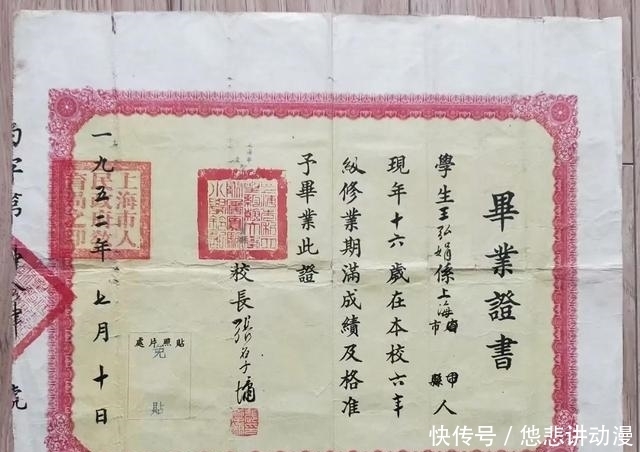 畢業證書
學生王弘娟係上海市縣人
現年十六歲在本校六年
級修業期滿成績及格准
予畢業此證
校長張
一九五二年七月十日
上海市人民政府教育局之印
貼照片處
免貼
字第
號
快传号／悠悲讲动漫